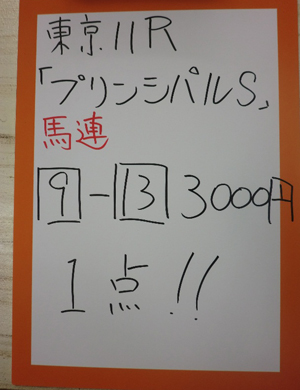 東京11R
「プリンシパルS」
馬連
9-13 3000円
1点!!